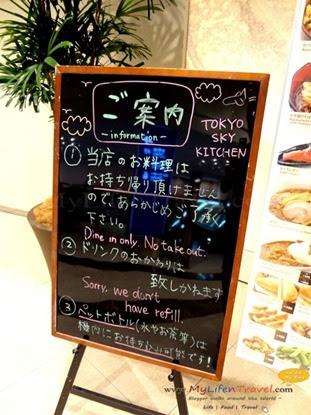 ご案内
- information -
TOKYO
SKY
KITCHEN
① 当店のお料理は
お持ち帰り頂けません
ので、あらかじめご了承
下さい。
Dine in only. No take out.
② ドリンクのおかわりは
致しかねます
Sorry, we don't
have refill.
③ ペットボトル(水やお茶等)は
機内にお持ち込み可能です!
www.MyLifenTravel.com
Blogger walks around the World -
Life | Food | Travel